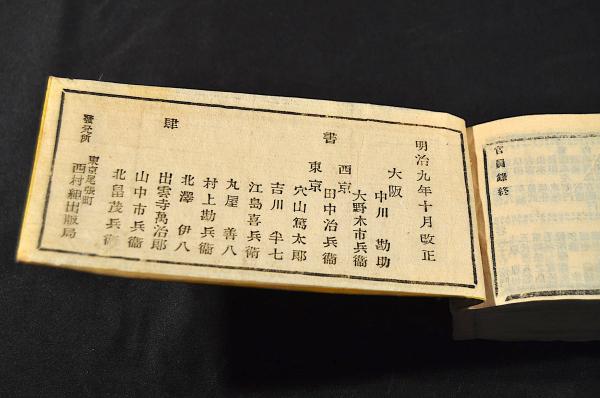 官員錄終
明治九年十月改正
大阪
中川勘助
大野木市兵衞
西京
田中治兵衞
書
東京
穴山篤太郎
吉川半七
江島喜兵衞
丸屋善八
村上勘兵衞
肆
北澤伊八
出雲寺萬治郎
山中市兵衞
北畠茂兵衞
東京尾張町
發兌所
西村組出版局